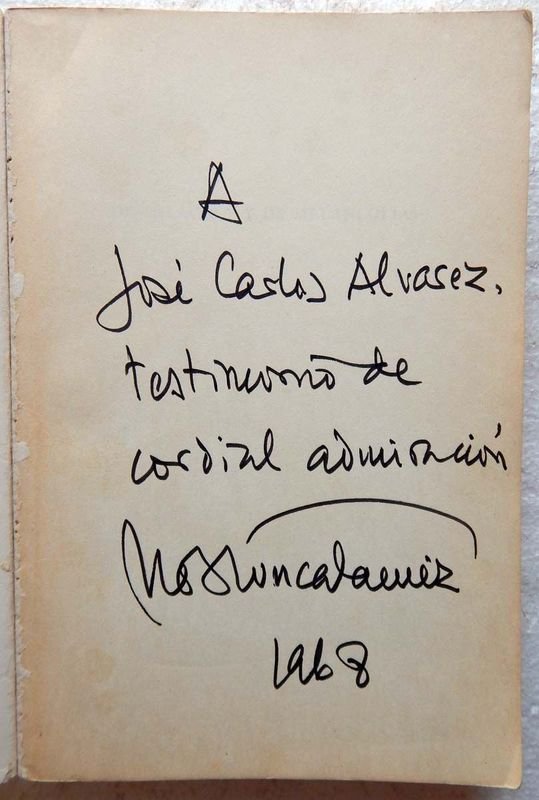 A
José Carlos Alvarez,
testimonio de
cordial admiración
1968